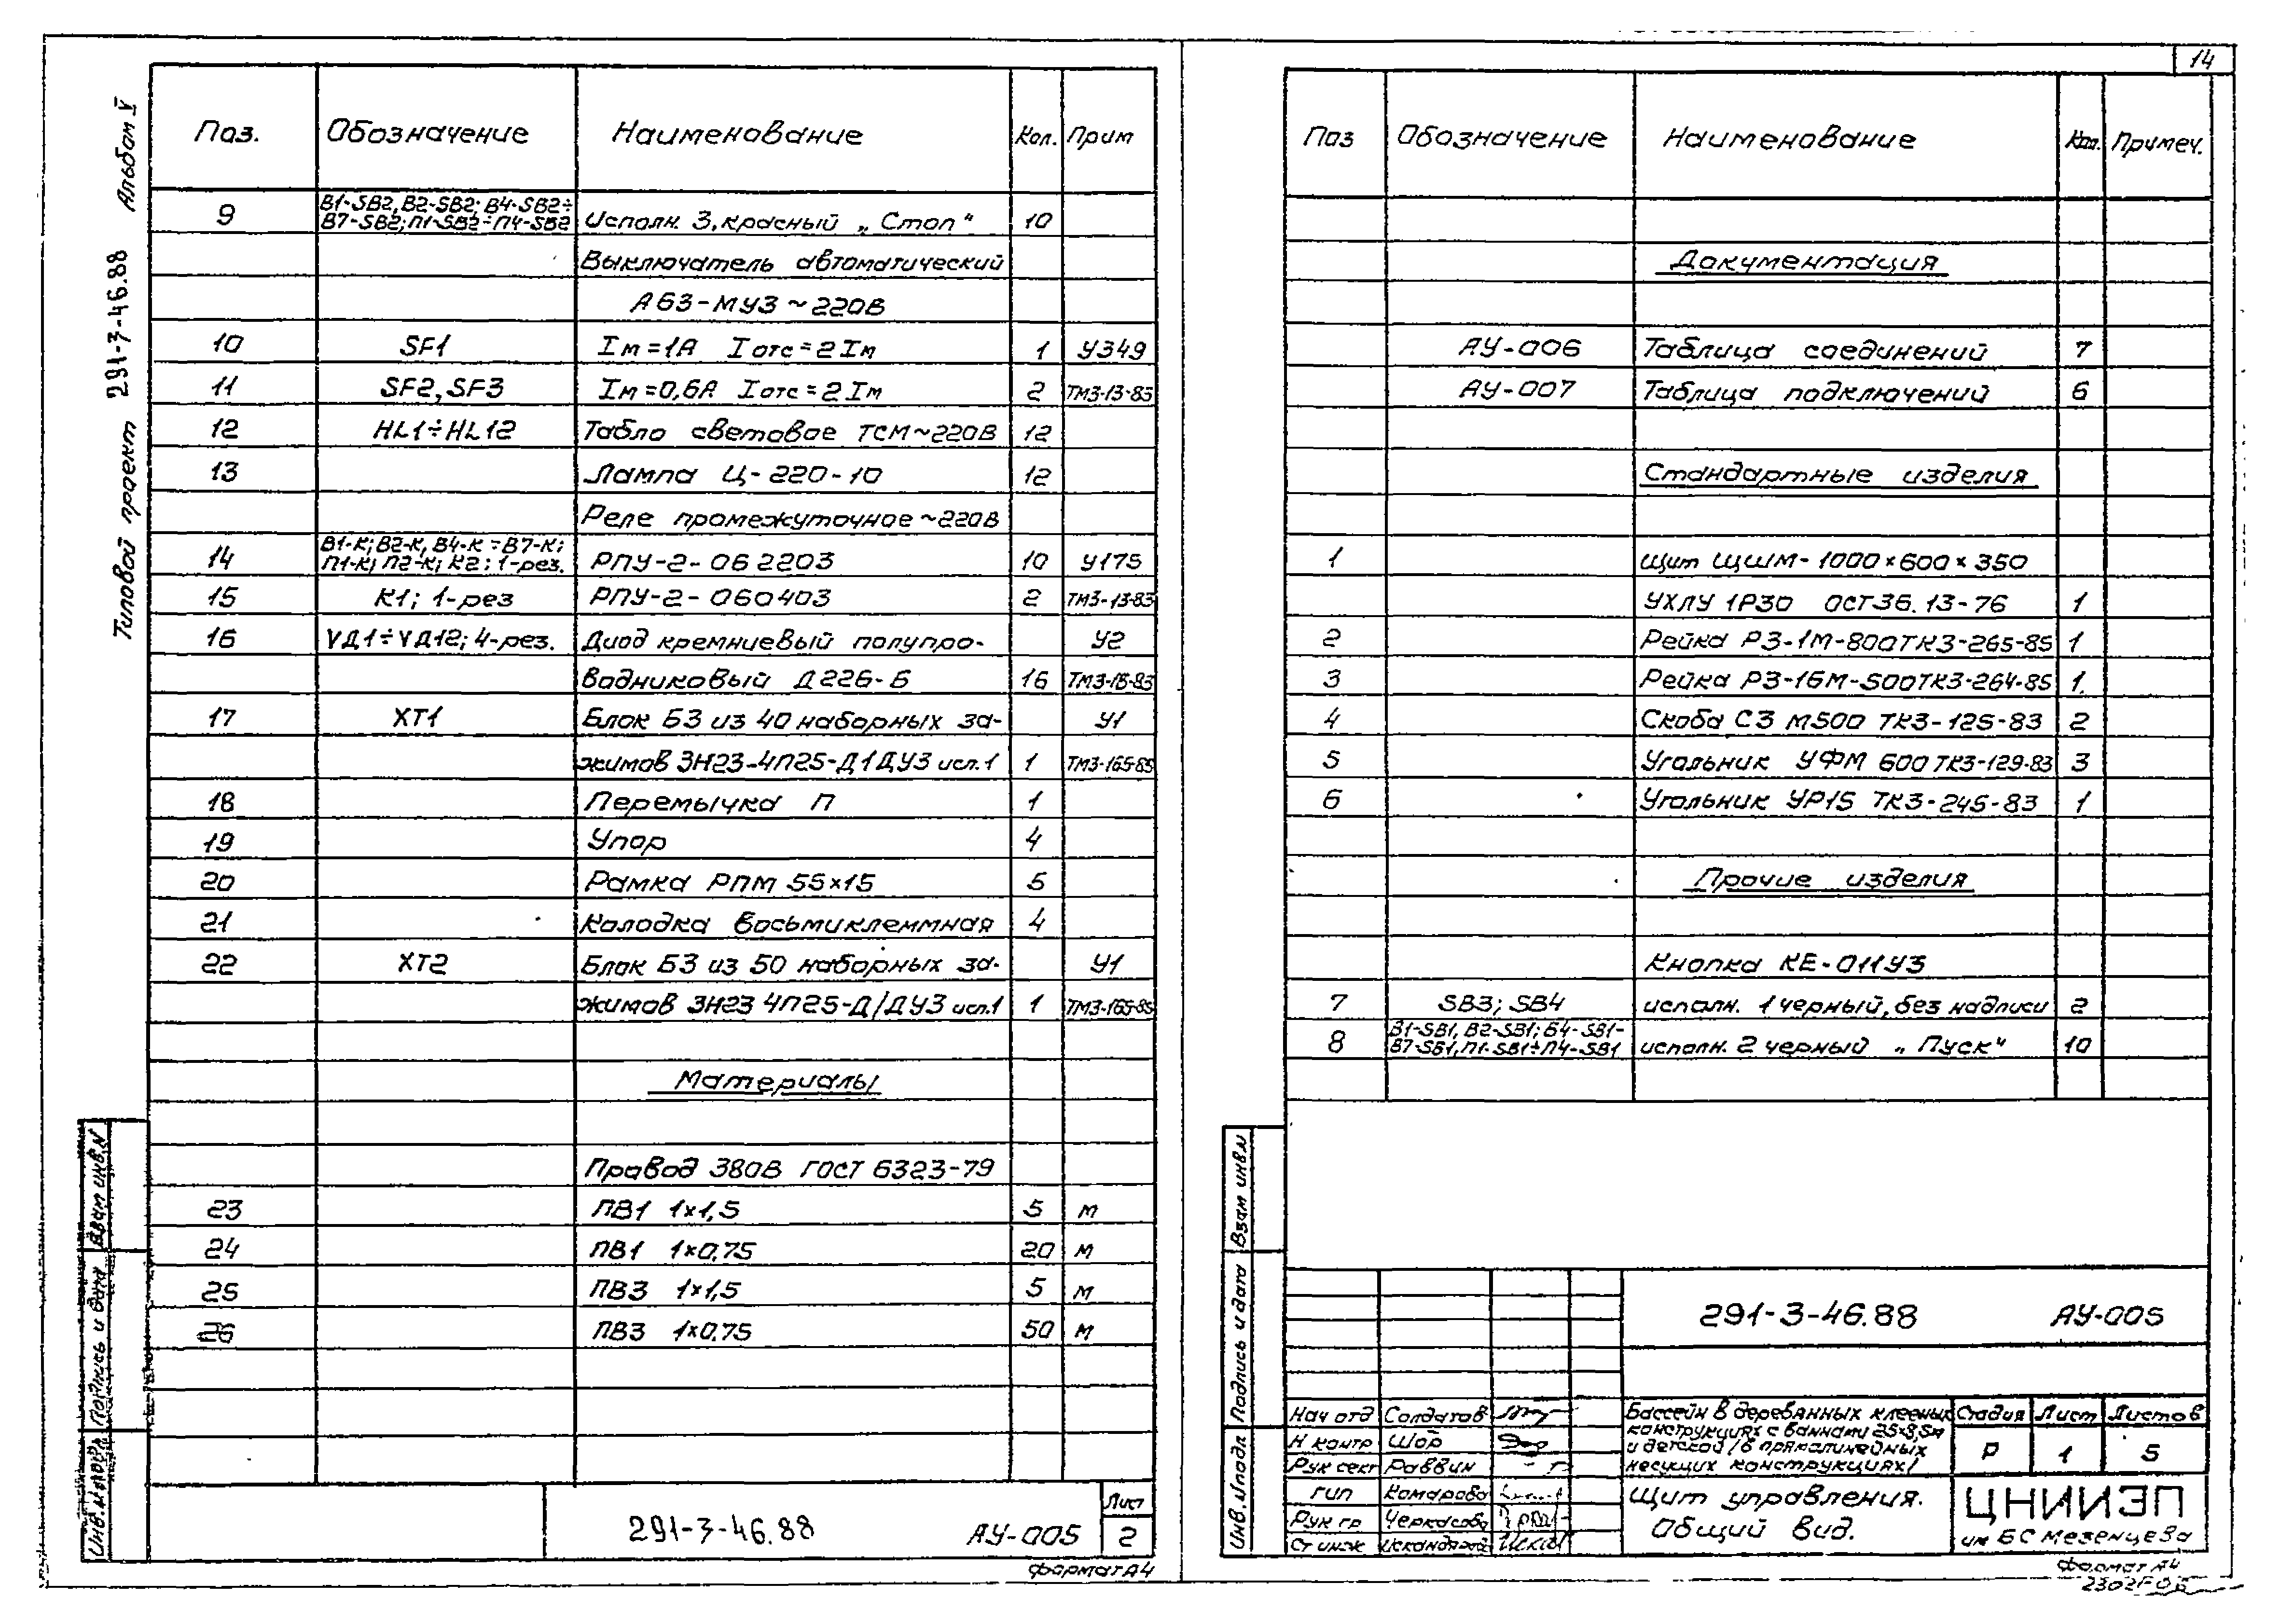 14
Типовой проект 291-3-46.88 Альбом V
Поз. Обозначение Наименование Кол. Прим
9 В1-SB2, В2-SB2; В4-SB2÷ В7-SB2; П1-SB2÷П4-SB2 Исполн. 3, красный „Стоп“ 10
Выключатель автоматический
А63-МУ3 ~220В
10 SF1 Iм=1А Iотс=2Iм 1 У349
11 SF2, SF3 Iм=0,6А Iотс=2Iм 2 ТМ3-13-83
12 HL1÷HL12 Табло световое ТСМ~220В 12
13 Лампа Ц-220-10 12
Реле промежуточное ~220В
14 В1-К; В2-К, В4-К÷В7-К; П1-К; П2-К; К2; 1-рез. РПУ-2-062203 10 У175
15 К1; 1-рез РПУ-2-060403 2 ТМ3-13-83
16 VД1÷VД12; 4-рез. Диод кремниевый полупро- У2
водниковый Д226-Б 16 ТМ3-13-83
17 ХТ1 Блок Б3 из 40 наборных за- У1
жимов ЗН23-4П25-Д1ДУ3 исп.1 1 ТМ3-165-85
18 Перемычка П 1
19 Упор 4
20 Рамка РПМ 55×15 5
21 Колодка восьмиклеммная 4
22 ХТ2 Блок Б3 из 50 наборных за- У1
жимов ЗН23 4П25-Д/ДУ3 исп.1 1 ТМ3-165-85
Материалы
Провод 380В ГОСТ 6323-79
23 ПВ1 1×1,5 5 м
24 ПВ1 1×0,75 20 м
25 ПВ3 1×1,5 5 м
26 ПВ3 1×0,75 50 м
Взам инв.N
Подпись и дата
Инв.N подл
291-3-46.88 АУ-005 Лист 2
Формат А4
Поз Обозначение Наименование Кол. Примеч.
Документация
АУ-006 Таблица соединений 7
АУ-007 Таблица подключений 6
Стандартные изделия
1 Щит ЩШМ-1000×600×350
УХЛУ 1Р30 ОСТ36.13-76 1
2 Рейка Р3-1М-800ТК3-265-85 1
3 Рейка Р3-16М-500ТК3-264-85 1
4 Скоба С3 М500 ТК3-125-83 2
5 Угольник УФМ 600 ТК3-129-83 3
6 Угольник УР15 ТК3-245-83 1
Прочие изделия
Кнопка КЕ-011У3
7 SB3; SB4 исполн. 1 черный, без надписи 2
8 В1-SB1, В2-SB1; В4-SB1- В7-SB1, П1-SB1÷П4-SB1 исполн. 2 черный „Пуск“ 10
Взам инв.N
Подпись и дата
Инв.N подл
291-3-46.88 АУ-005
Нач отд Солдатов
Н контр Шор
Рук сект Раввин
ГИП Комарова
Рук гр Черкасова
Ст инж
Бассейн в деревянных клееных
конструкциях с ваннами 25×8,5м
и детской /в прямолинейных
несущих конструкциях/
Стадия Лист Листов
Р 1 5
Щит управления.
Общий вид.
ЦНИИЭП
им БС Мезенцева
Формат А4